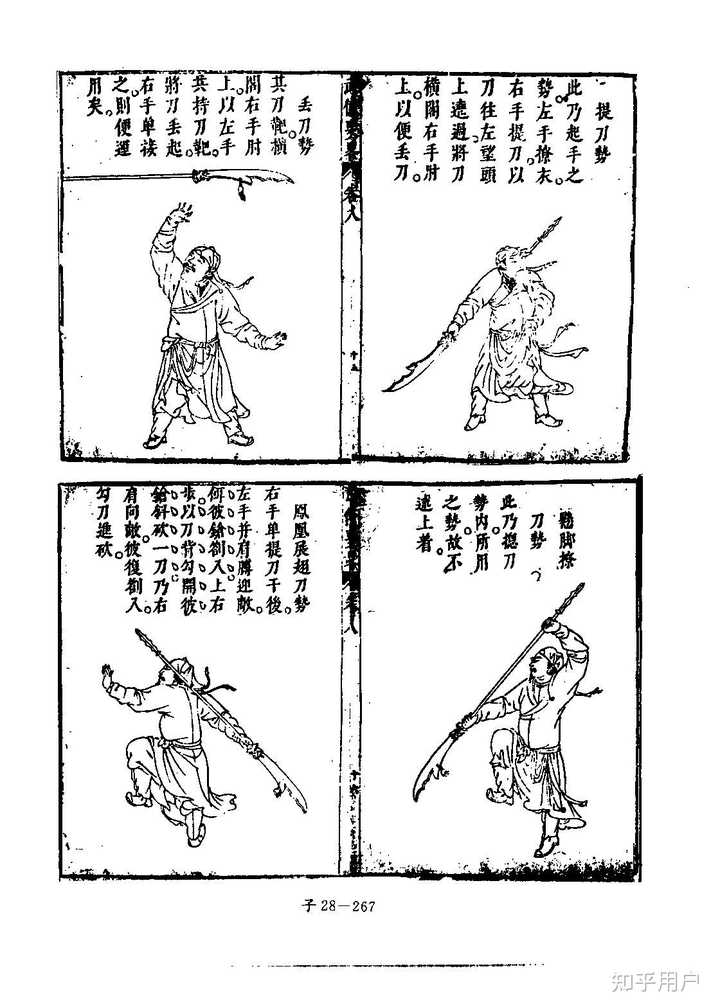 提刀勢
此乃起手之
勢。左手撩衣。
右手提刀以
刀往左望頭
上遶過。將刀
橫閣右手肘
上。以便丢刀。
卷八
十五
丢刀勢
其刀靶橫
閣右手肘
上。以左手
共持刀靶。
將刀丢起。
右手单接
之。則便運
用矣。
脚撩
刀勢
此乃摠刀
勢内所用
之勢。故不
上着。
卷八
鳳凰展翅刀勢
右手单提刀于後。
左手并肩膊迎敵。
伺彼鎗劄入。上右
步。以刀背勾開彼
鎗。斜砍一刀。乃右
肩向敵。彼復劄入。
勾刀進砍。
子 28－267
知乎用户